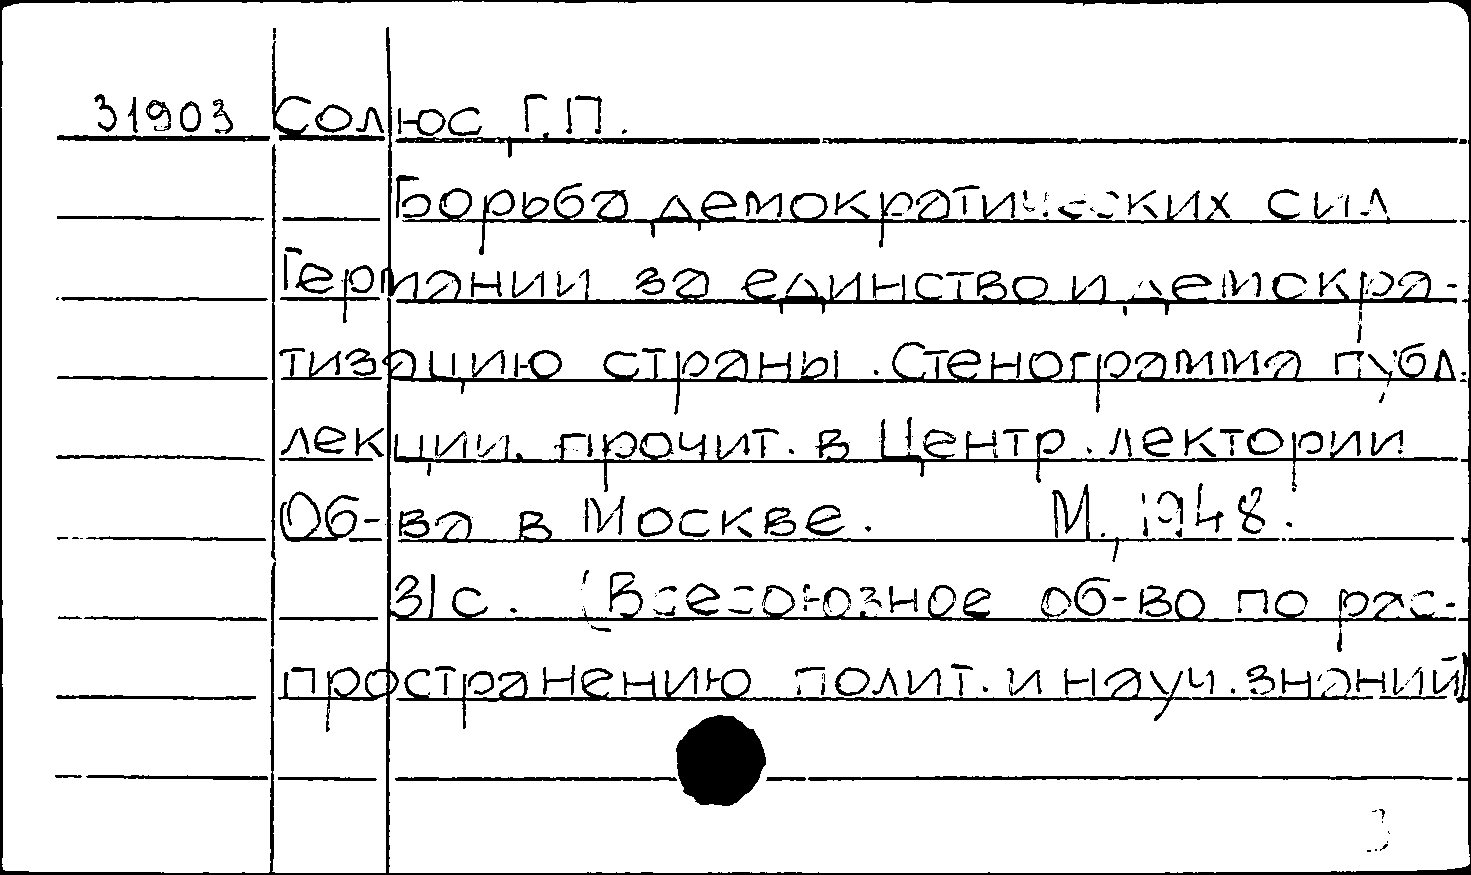 31903 Солюс, Г.П.
Борьба демократических сил
Германии за единство и демокра-
тизацию страны. Стенограмма публ.
лекции, прочит. в Центр. лектории
Об-ва в Москве. М., 1948.
31с. (Всесоюзное об-во по рас-
пространению полит. и науч. знаний)
3